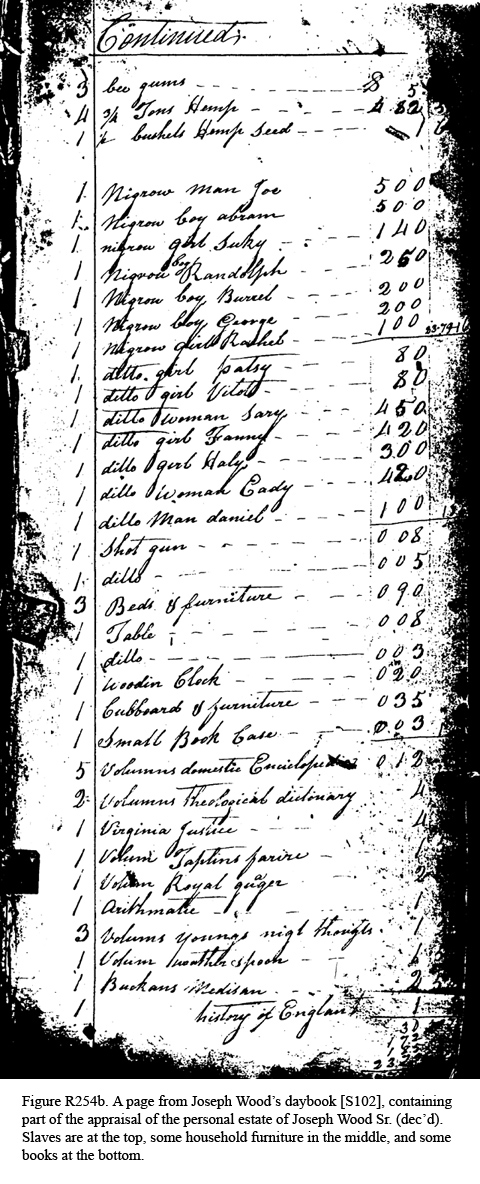 Continued
3 bee gums 8 5
4 3/4 Tons Hemp 4 82
1 1/2 bushels Hemp Seed 1
1 Nigrow man Joe 500
1 Nigrow boy abram 500
1 nigrow girl Suky 140
1 Nigrow boy Randolph 250
1 Nigrow boy Burrel 200
1 Nigrow boy George 200
1 Nigrow girl Rachel 100
1 ditto girl patsy 80
1 ditto girl 80
1 ditto woman Sary 450
1 ditto girl Fanny 420
1 ditto girl Haly 300
1 ditto Woman Eady
1 ditto Man daniel 100
1 Shot gun 008
1 ditto 005
3 Beds & furniture 090
1 Table 008
1 ditto 003
1 Woodin Clock 020
1 Cubboard & furniture 035
1 Small Book Case 003
5 Volumns domestic 012
2 Volumns theological dictonary 4
1 Virginia Justice 4
1 Volum Taplins farire
1 Volum Royal 2
1 Arithmatic 1
3 Volums youngs nigt thougts 1
1 Volum 1
1 Buckans Medisan 2
1 history of England 1
30
Figure R254b. A page from Joseph Wood’s daybook [S102], containing
part of the appraisal of the personal estate of Joseph Wood Sr. (dec’d).
Slaves are at the top, some household furniture in the middle, and some
books at the bottom.